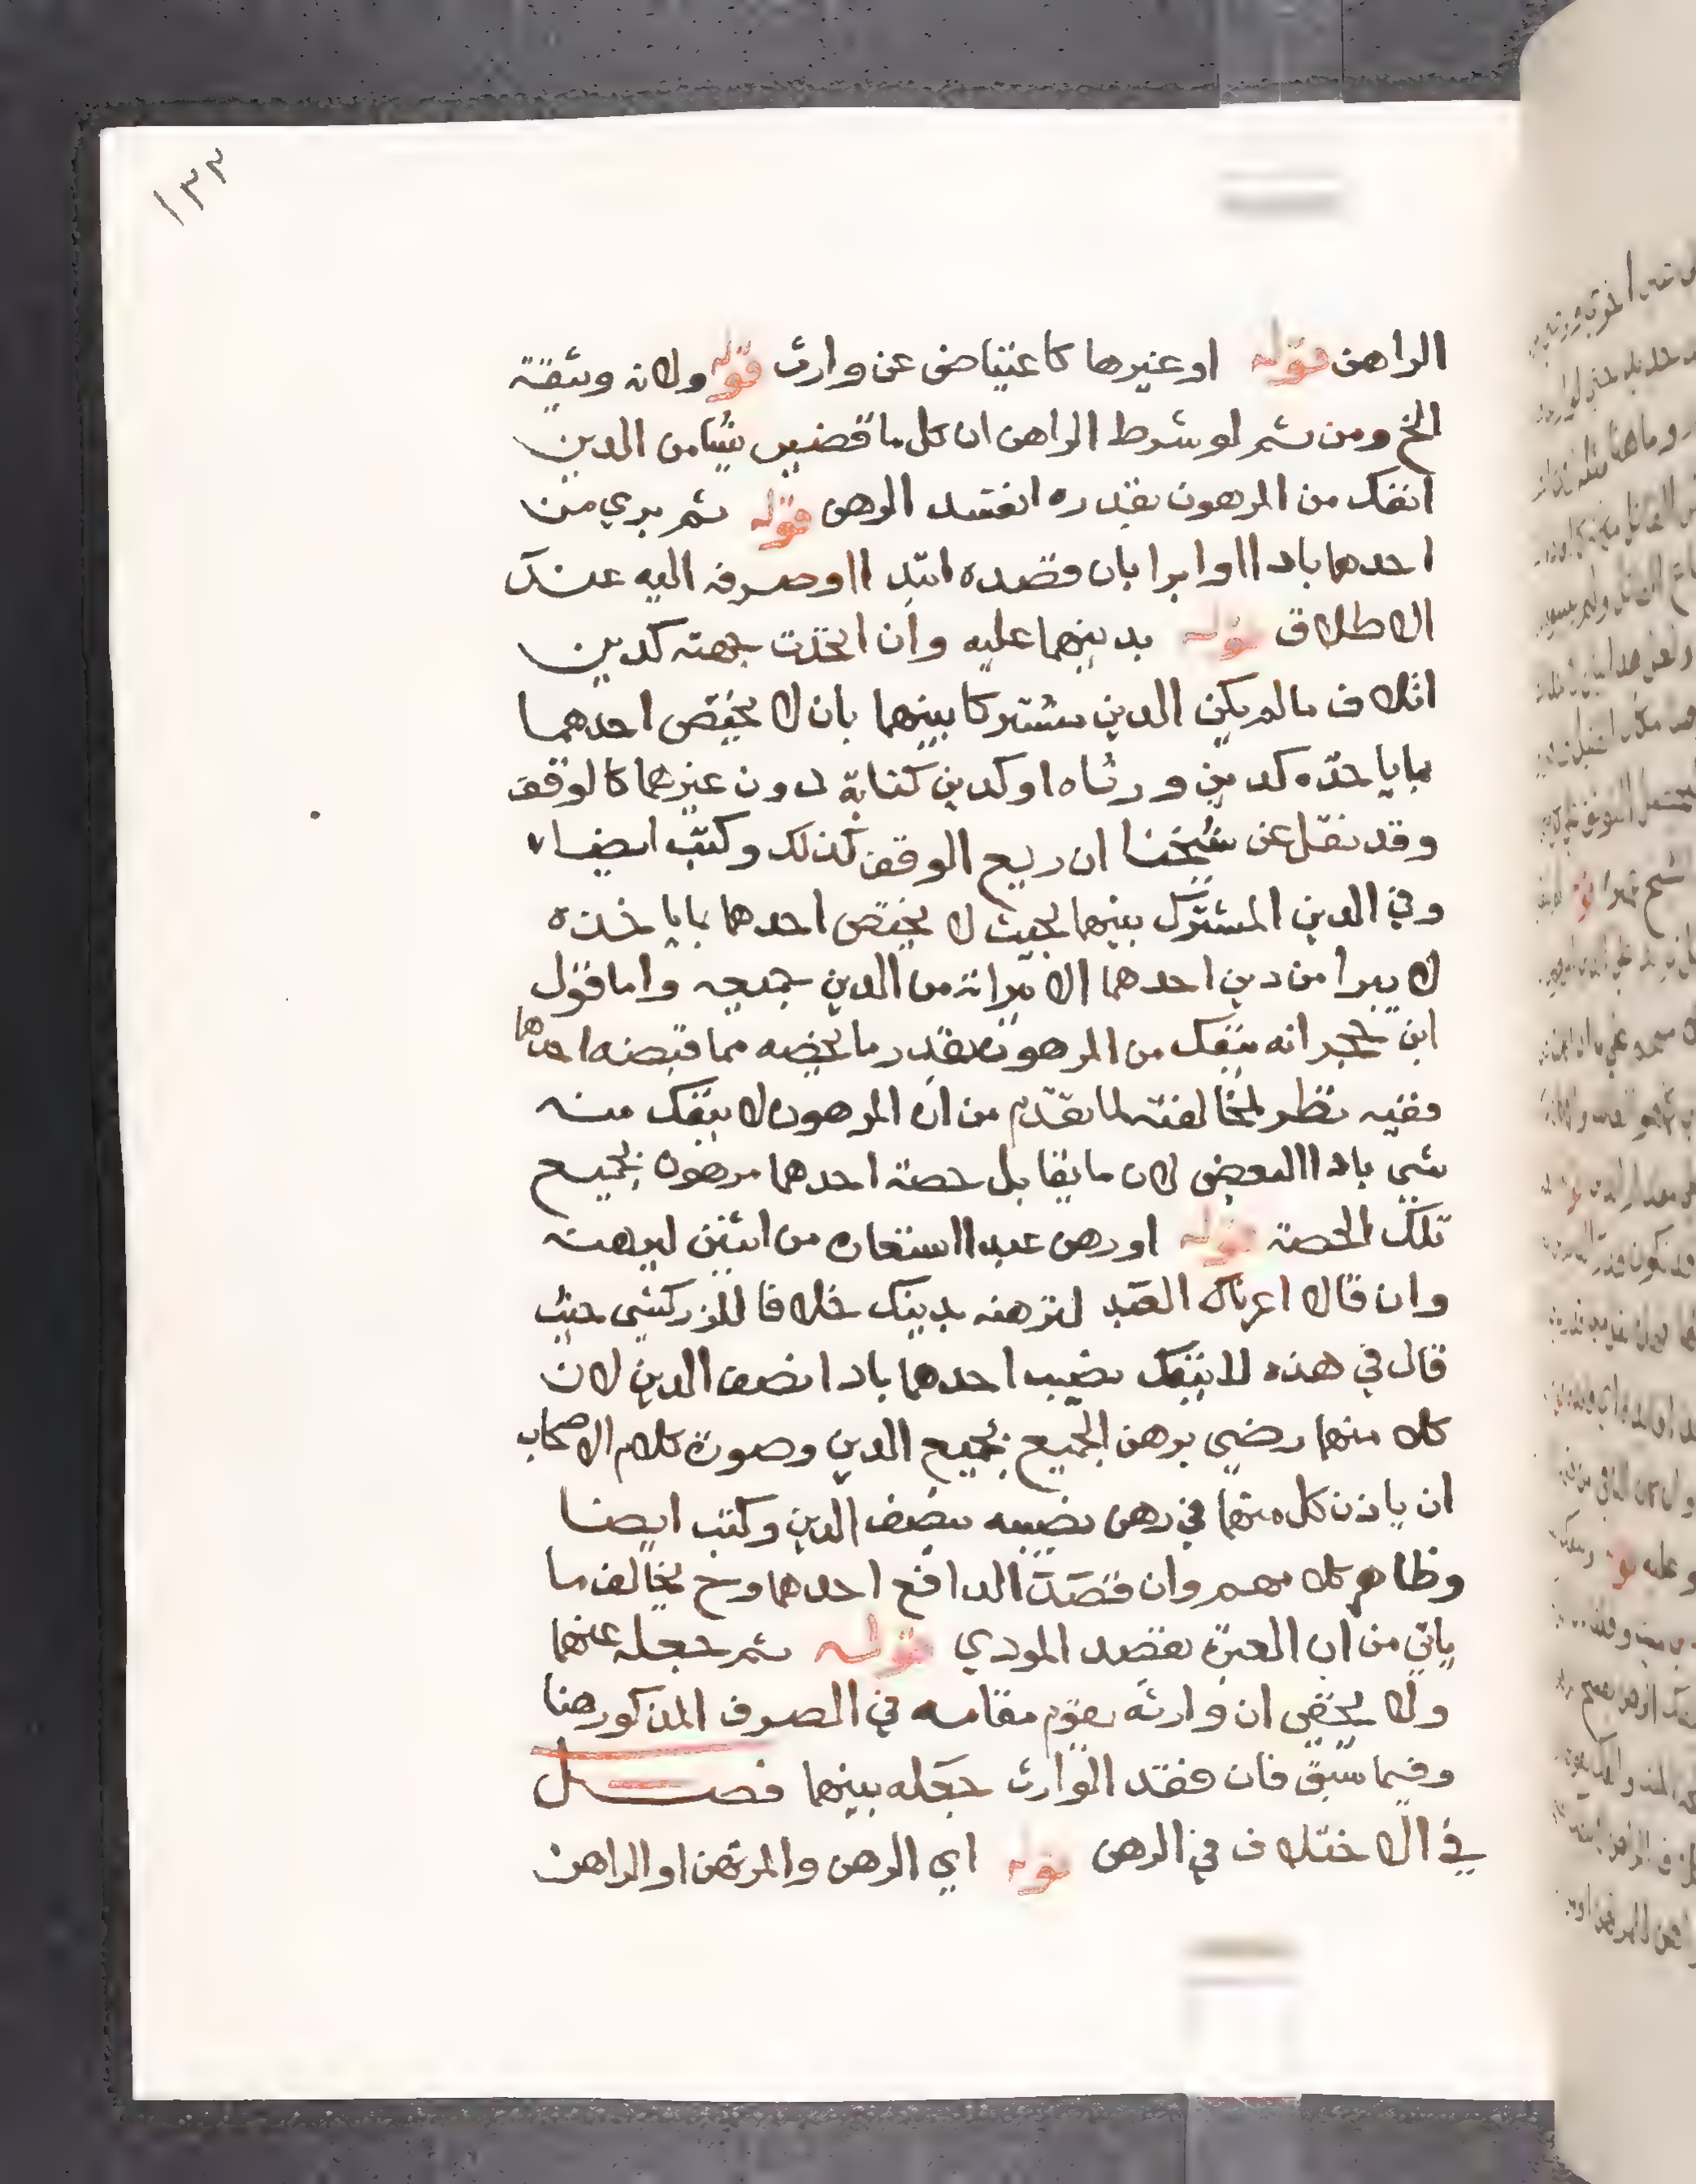 ١٣٢
الراهن قوله او غيرها كاعتياض عن وارث قوله ولانه وثيقة
الخ ومن ثم لو شرط الراهن ان كل ما قضي شيئا من الدين
انفك من المرهون بقدره افسد الرهن قوله ثم بري من
احدهما باداا وابرا بان قصده ابتدا او صرفه اليه عند
الاطلاق قوله بدينهما عليه وان اتحدت جهته كدين
اتلاف ما لم يكن الدين مشتركا بينهما بان لا يختص احدهما
بما ياخذه كدين ورثاه او كدين كتابة دون غيرهما كالوقف
وقد نقل عن شيخنا ان ريع الوقف كذلك وكتب ايضا
وفي الدين المشترك بينهما بحيث لا يختص احدهما بما ياخذه
لا يبرا من دين احدهما الا ببرانه من الدين جميعه واما قول
ابن حجر انه ينفك من المرهون بقدر ما يخصه مما قبضه احدهما
ففيه نظر لمخالفته لما تقدم من ان المرهون لا ينفك منه
شي باداا البعض لان ما يقابل حصة احدهما مرهون بجميع
تلك الحصة قوله او رهن عبدا استعاره من اثنين ليرهنه
وان قالا اعرناك العبد لترهنه بدينك خلافا للزركشي حيث
قال في هذه لا ينفك نصيب احدهما بادا نصف الدين لان
كلا منهما رضي برهن الجميع بجميع الدين وصورة كلام الاصحاب
ان ياذن كل منهما في رهن نصيبه بنصف الدين وكتب ايضا
وظاهر كلامهم وان قصد الدافع احدهما وح يخالف ما
ياتي من ان العبرة بقصد المودي قوله ثم جعله عنهما
ولا يخفي ان وارثه يقوم مقامه في الصرف المذكور هنا
وفيما سبق فان فقد الوارث جعله بينهما فصل
في الاختلاف في الرهن قوله اي الرهن والمرتهن او الراهن